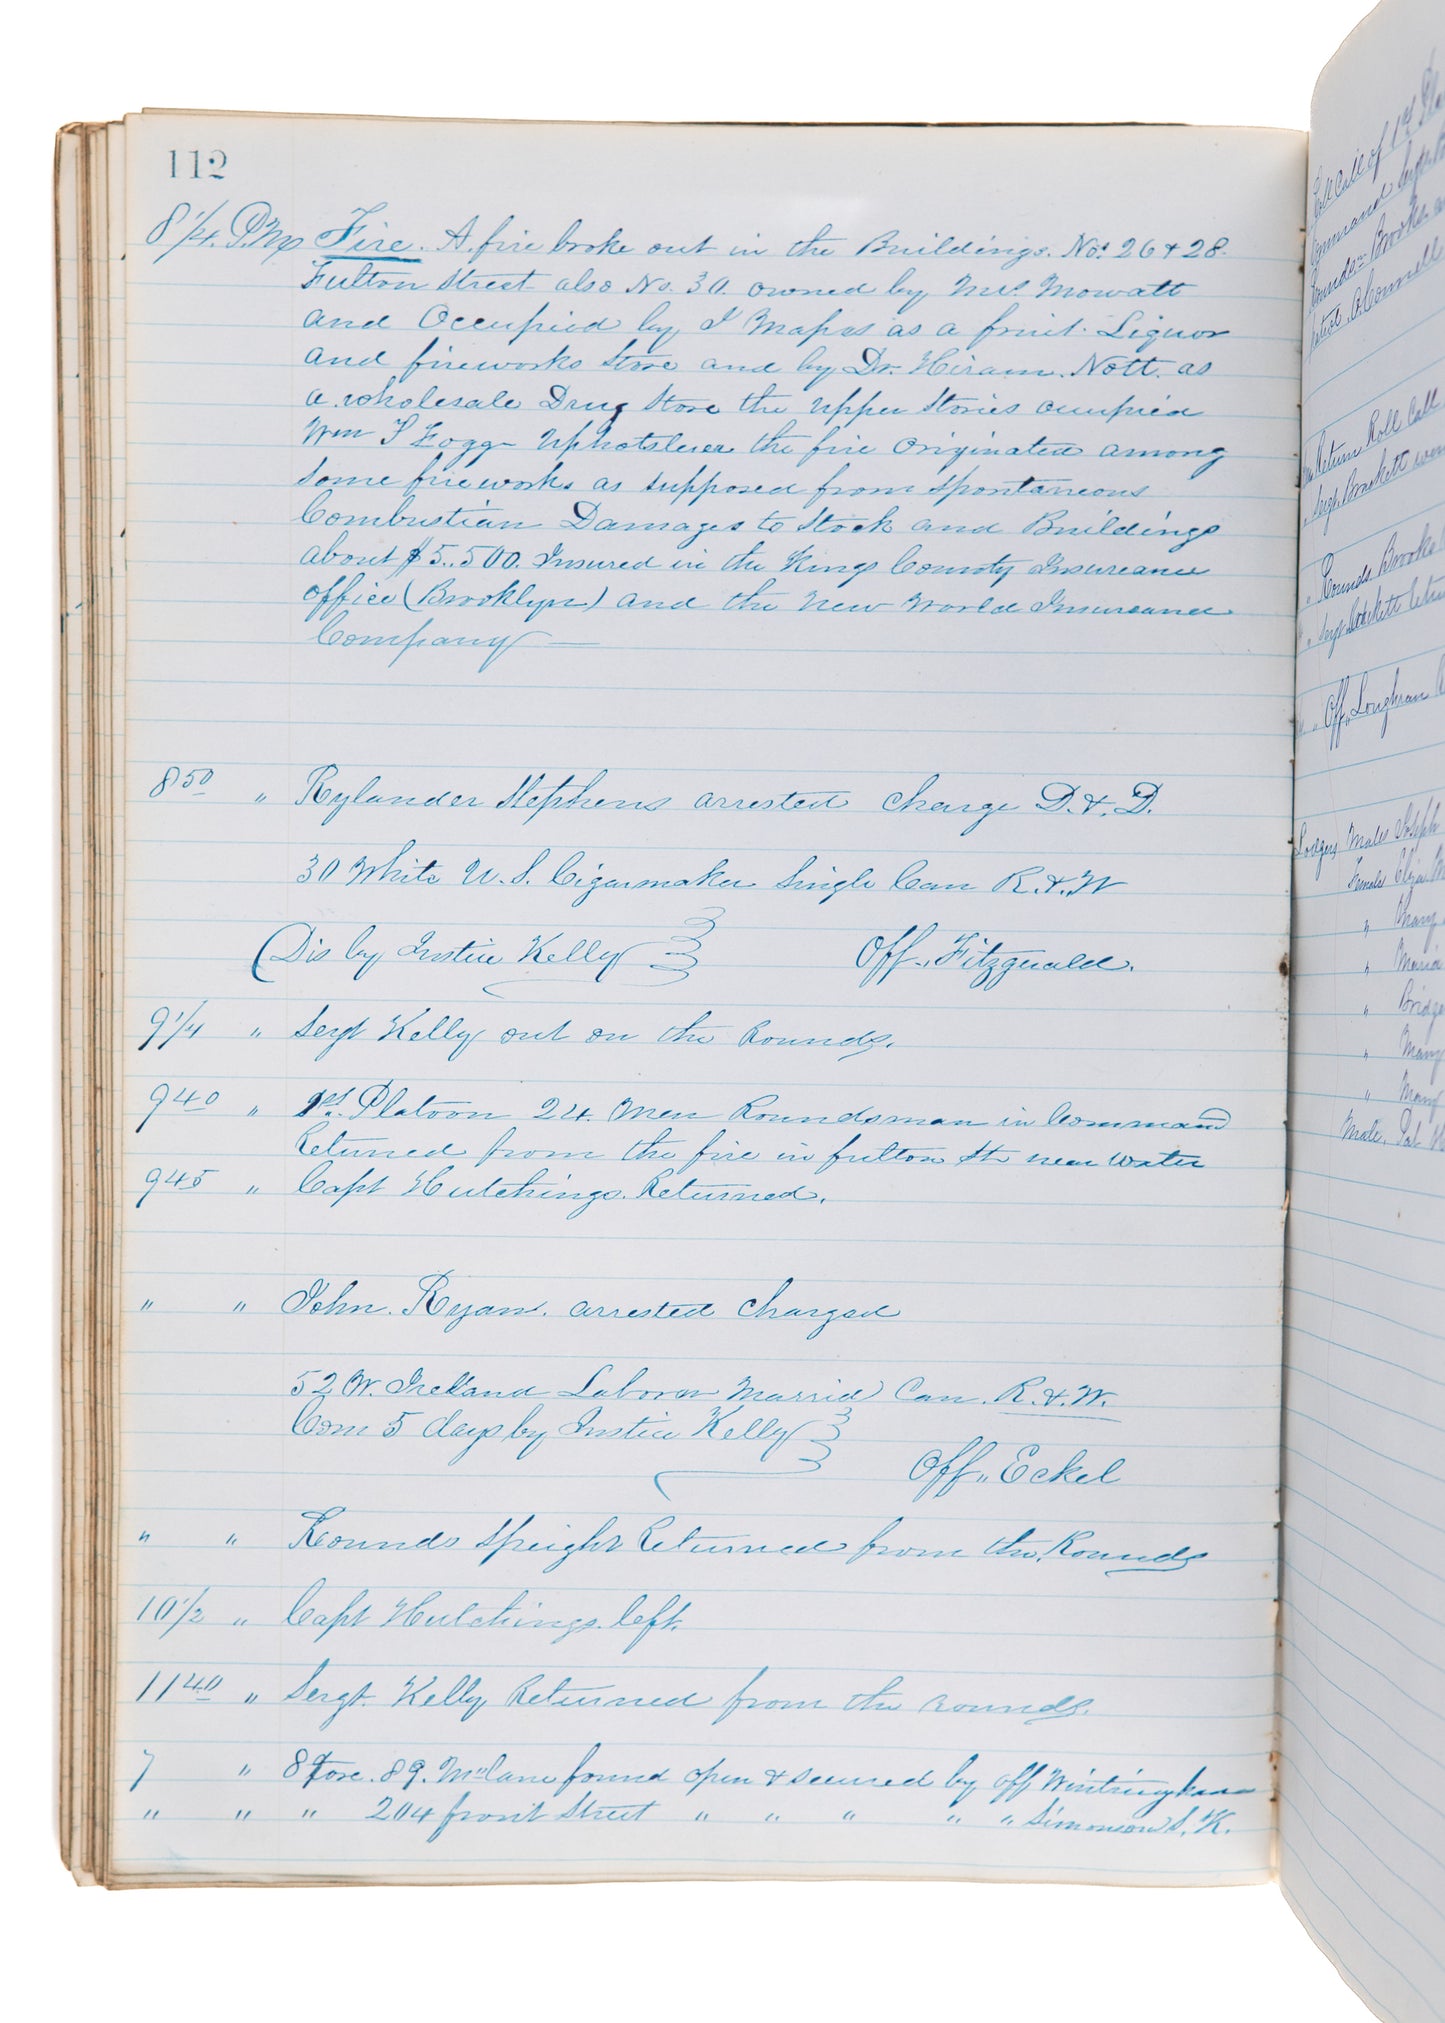 112
8 1/4 P.M. Fire. A fire broke out in the Buildings. Nos 26 & 28.
Fulton Street also No. 30. owned by Mrs. Mowatt
and Occupied by J Mapes as a fruit. Liquor
and fireworks Store and by Dr. Hiram. Nott. as
a wholesale Drug Store the upper Stories occupied
Wm S Fogg the fire originated among
some fireworks as supposed from spontaneous
Combustian Damages to Stock and Buildings
about $5..500. Insured in the Kings County Insureance
office (Brooklyn) and the New World Insureance
Company —
8 50 " Rylander Stephens arrested charge D. & D.
30 White U. S. Cigarmaker Single Can R. & W
(Dis by Justice Kelly Off.. Fitzguald.
9 1/4 " Sergt Kelly out on the Rounds.
9 40 " 1st. Platoon 24. Men Roundsman in Command
Returned from the fire in fulton St. near water
9 45 " Capt Hutchings. Returned.
" " John. Ryan. arrested charged
52 W. Ireland Laborer Marrid Can. R. & W.
Com 5 days by Justice Kelly
Off,, Eckel
" " Rounds Speight Returned from the. Rounds
10 1/2 " Capt Hutchings. left.
11 40 " Sergt. Kelly Returned from the rounds.
7 " Store. 89. Mclane found open & secured by off Wintringham
" " " 204 front Street " " " " " Simonson S. K.
Roll Call of 1st
Command
Rounds Brooks
patrol O.Connell
Return Roll Call
" Sergt. Brackett
" Rounds. Brooks
" Sergt.
" " Off,, Loughran
Lodgers Males Joseph
Females Eliza
" Mary
" Maria
" Bridge
" Mary
" Mary
Male. Pat